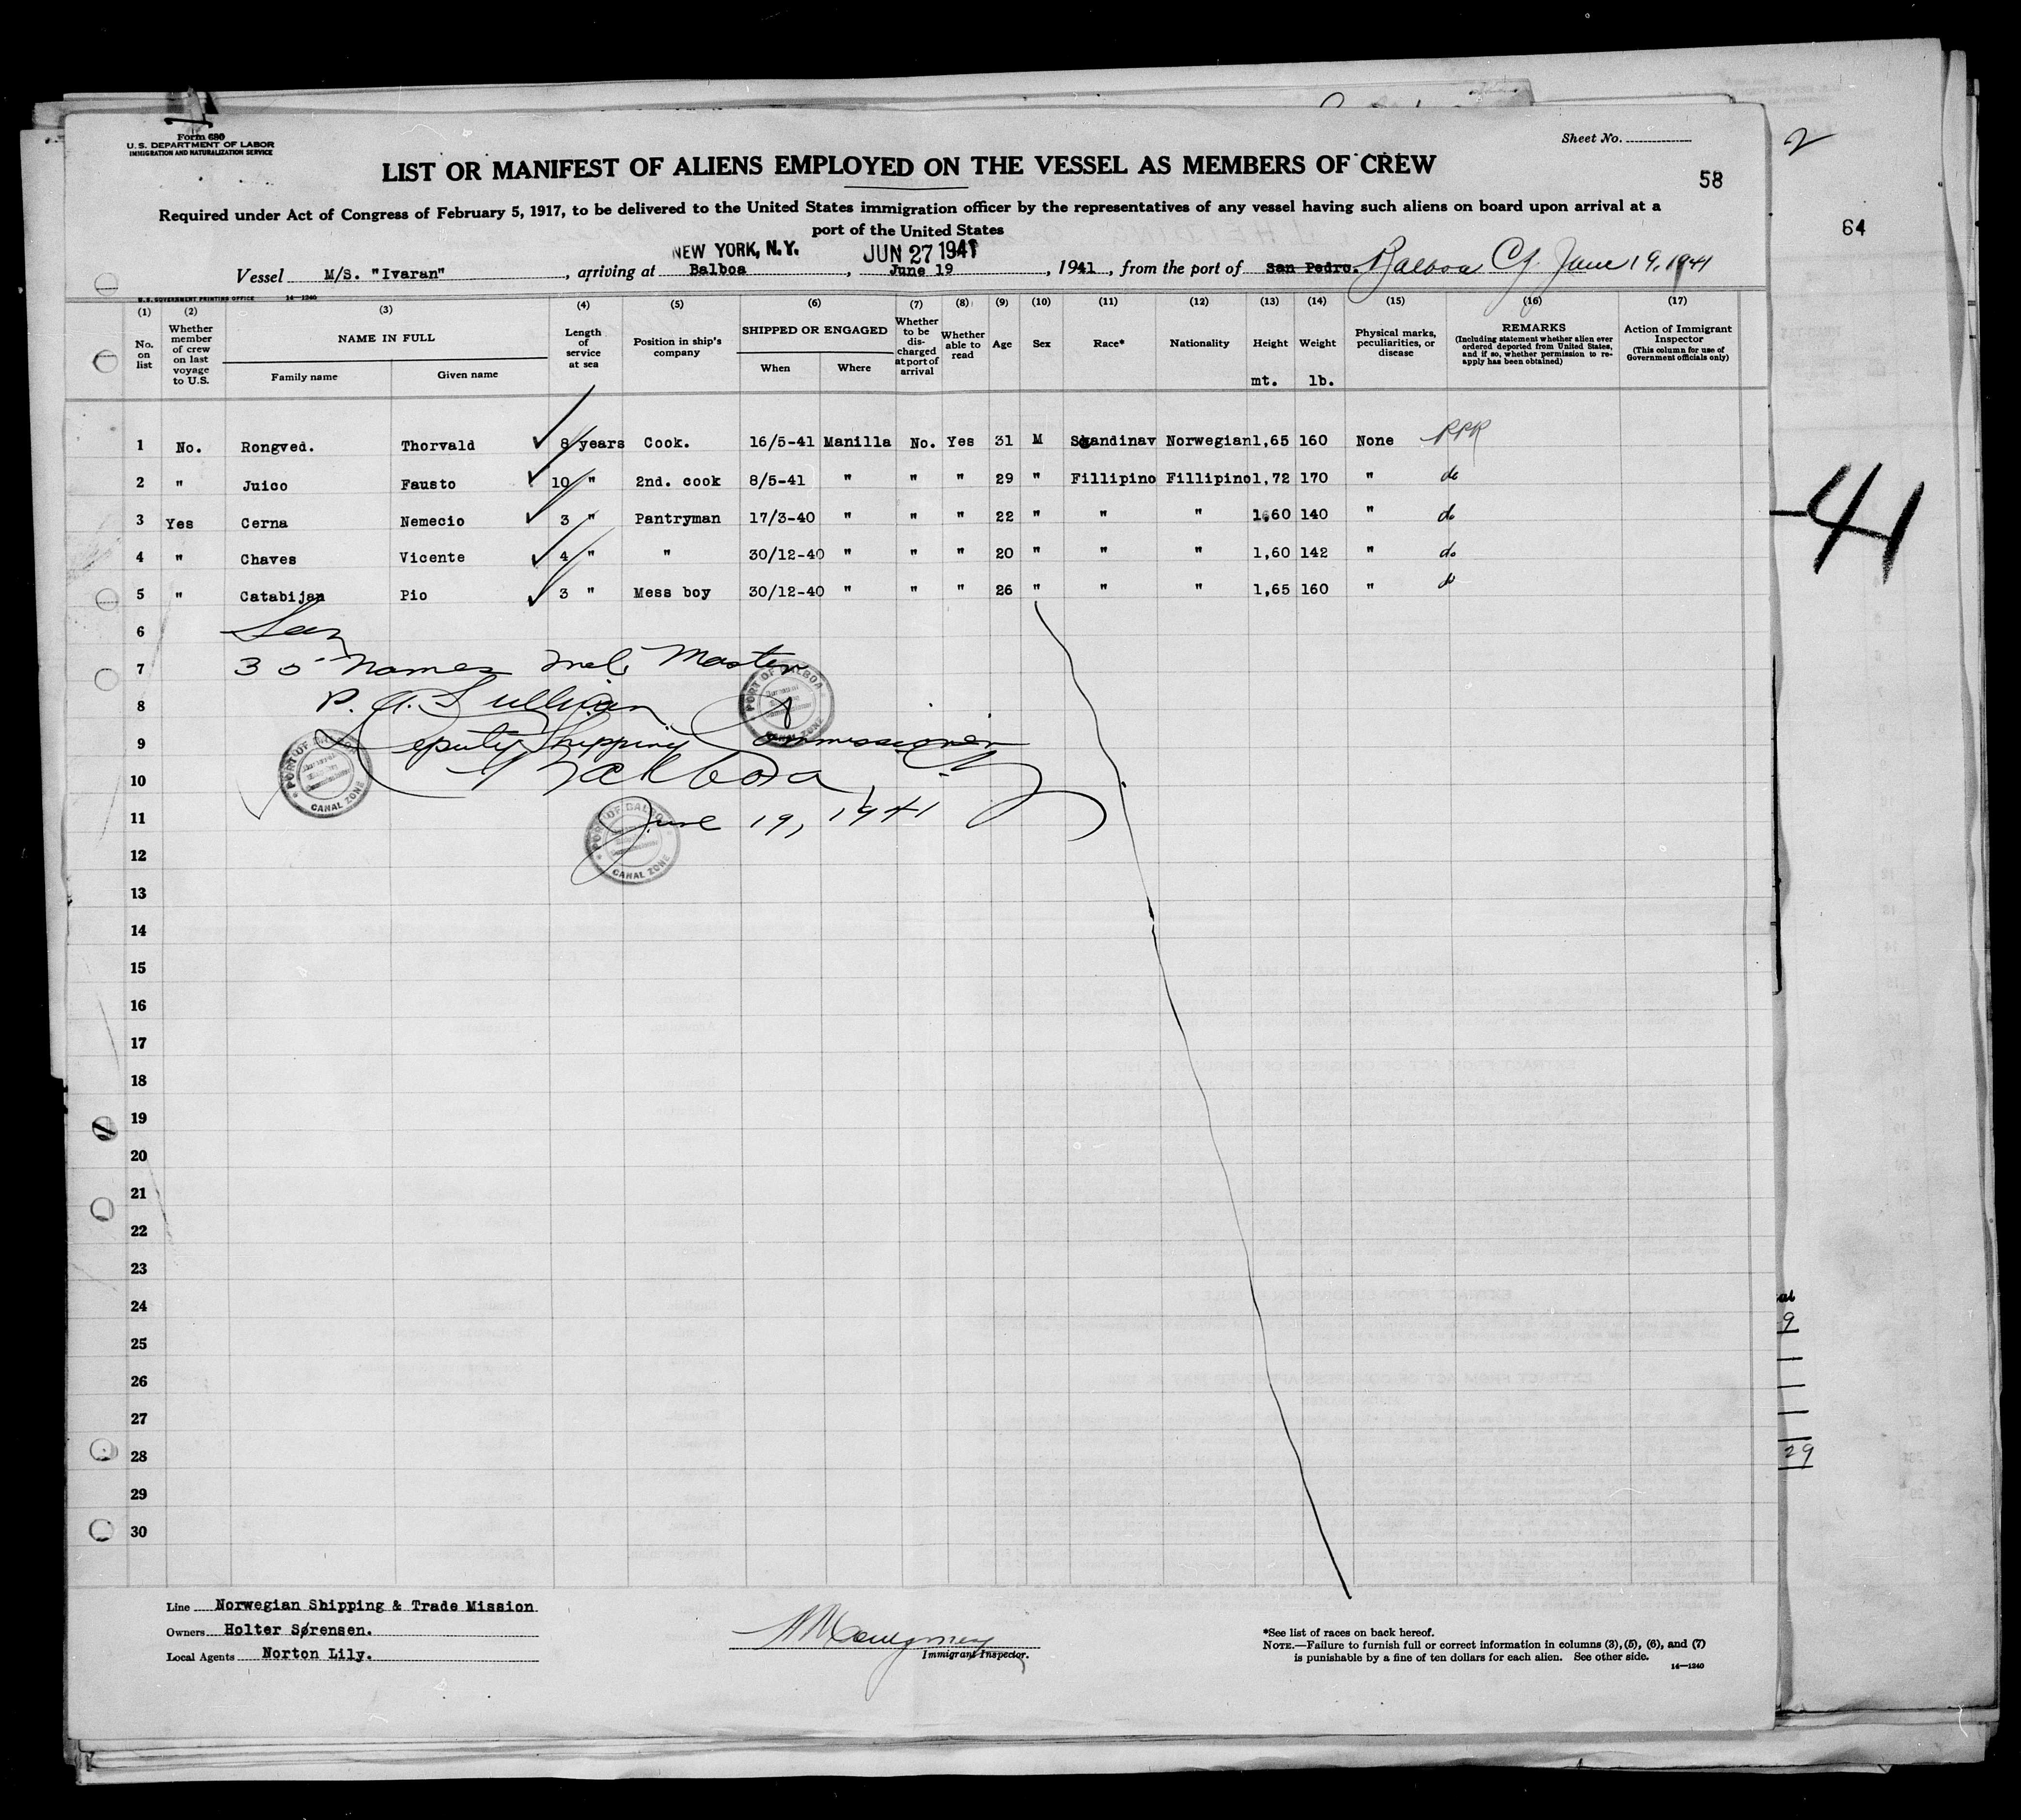 Form 680
U.S. DEPARTMENT OF LABOR
IMMIGRATION AND NATURALIZATION SERVICE
Sheet No.
2
LIST OR MANIFEST OF ALIENS EMPLOYED ON THE VESSEL AS MEMBERS OF CREW
58
64
Required under Act of Congress of February 5, 1917, to be delivered to the United States immigration officer by the representatives of any vessel having such aliens on board upon arrival at a
port of the United States
NEW YORK, N.Y. JUN 27 1941
Vessel M/S. "Ivaran", arriving at Balboa, June 19, 1941, from the port of San Pedro. Balboa CZ. June 19, 1941
U.S. GOVERNMENT PRINTING OFFICE 14—1240
(1) (2) (3) (4) (5) (6) (7) (8) (9) (10) (11) (12) (13) (14) (15) (16) (17)
No. on list
Whether member of crew on last voyage to U.S.
NAME IN FULL
Family name Given name
Length of service at sea
Position in ship's company
SHIPPED OR ENGAGED
When Where
Whether to be discharged at port of arrival
Whether able to read
Age
Sex
Race*
Nationality
Height
mt.
Weight
lb.
Physical marks, peculiarities, or disease
REMARKS
(Including statement whether alien ever ordered deported from United States, and if so, whether permission to reapply has been obtained)
Action of Immigrant Inspector
(This column for use of Government officials only)
1 No. Rongved. Thorvald 8 years Cook. 16/5-41 Manilla No. Yes 31 M Skandinav Norwegian 1,65 160 None RPR
2 " Juico Fausto 10 " 2nd. cook 8/5-41 " " " 29 " Fillipino Fillipino 1,72 170 " do
3 Yes Cerna Nemecio 3 " Pantryman 17/3-40 " " " 22 " " " 1,60 140 " do
4 " Chaves Vicente 4 " " 30/12-40 " " " 20 " " " 1,60 142 " do
5 " Catabijan Pio 3 " Mess boy 30/12-40 " " " 26 " " " 1,65 160 " do
6 Seen
7 30 names incl. Master
8 P. A. Sullivan
9 Deputy Shipping Commissioner
10 Balboa, CZ
11 June 19, 1941
12
13
14
15
16
17
18
19
20
21
22
23
24
25
26
27
28
29
30
PORT OF BALBOA
CANAL ZONE
PORT OF BALBOA
CANAL ZONE
PORT OF BALBOA
CANAL ZONE
-41
9
29
Line Norwegian Shipping & Trade Mission
Owners Holter Sørensen.
Local Agents Norton Lily.
Immigrant Inspector.
*See list of races on back hereof.
NOTE.—Failure to furnish full or correct information in columns (3), (5), (6), and (7)
is punishable by a fine of ten dollars for each alien. See other side.
14—1240